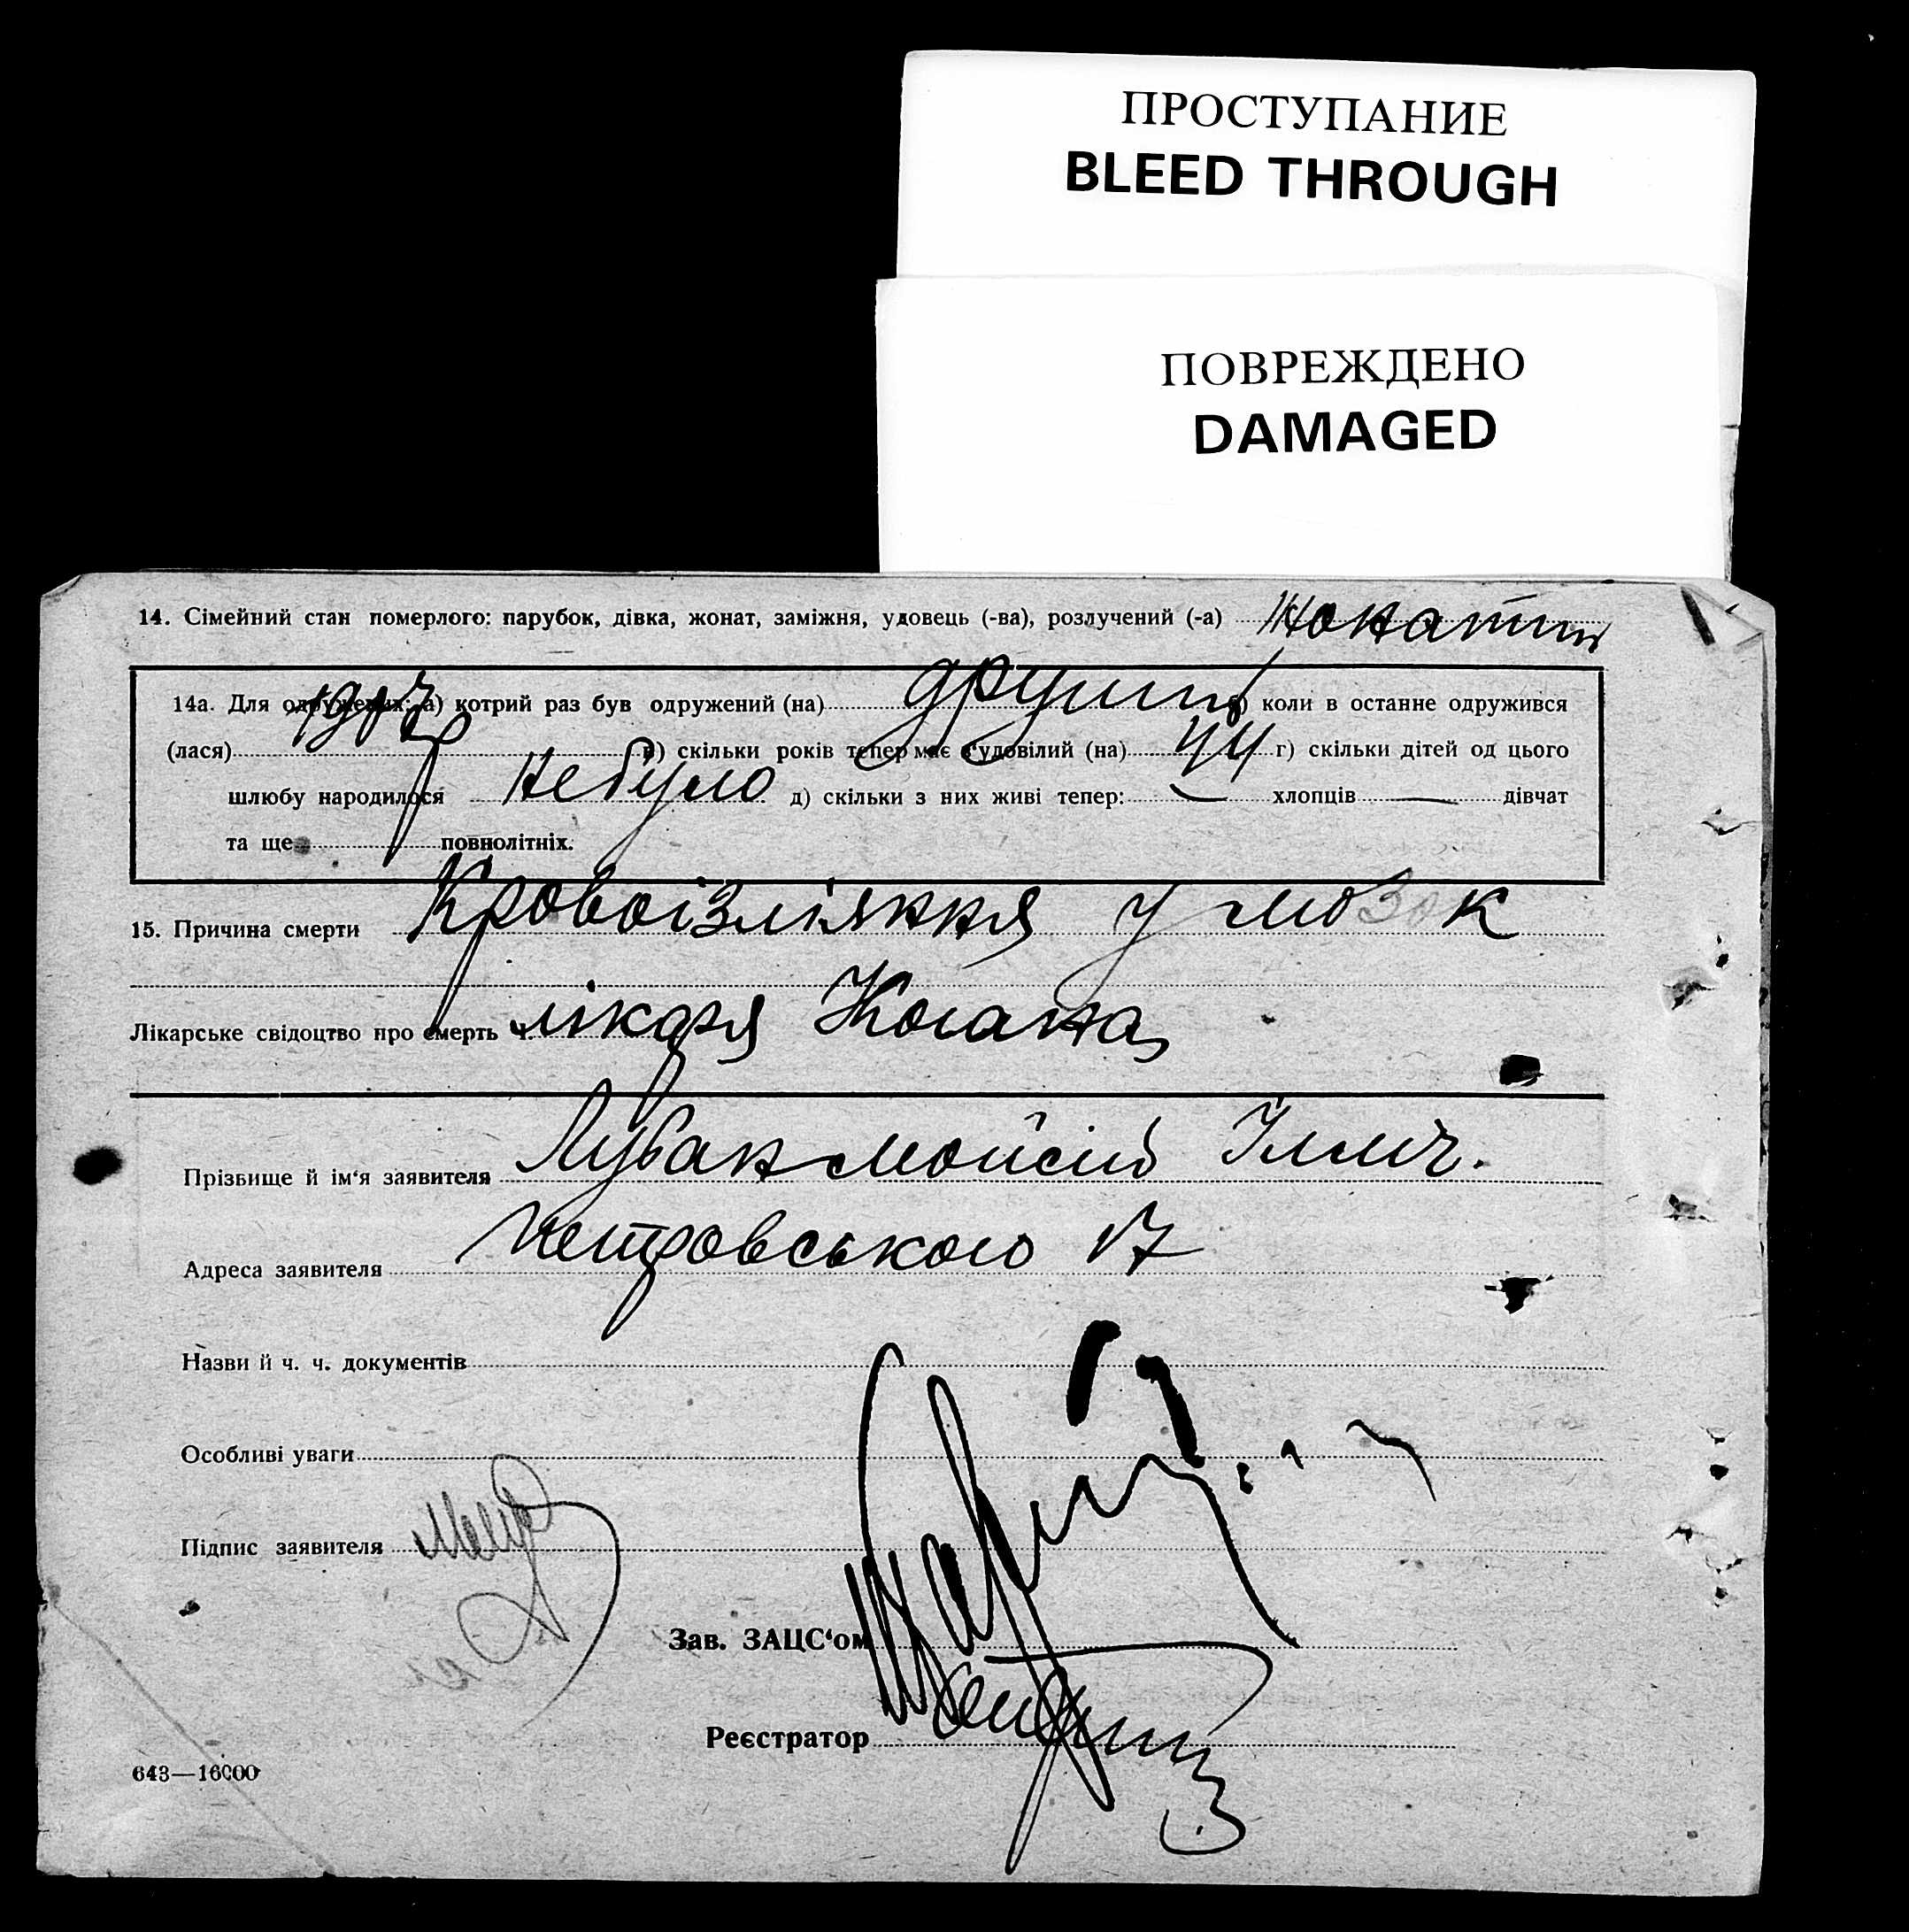 ПРОСТУПАНИЕ
BLEED THROUGH
ПОВРЕЖДЕНО
DAMAGED
14. Сімейний стан померлого: парубок, дівка, жонат, заміжня, удовець (-ва), розлучений (-а) жонатий
14а. Для одружених: а) котрий раз був одружений (на) другий б) коли в останне одружився
(лася) в) скільки років тепер має з'удовілий (на) 44 г) скільки дітей од цього
шлюбу народилося небуло д) скільки з них живі тепер: — хлопців — дівчат
та ще повнолітніх.
15. Причина смерти Кровоізліяння у мозок
Лікарське свідоцтво про смерть ч. лікаря Когана
Прізвище й ім'я заявителя Мойсій Ілліч.
Адреса заявителя Петровського 17
Назви й ч. ч. документів
Особливі уваги
Підпис заявителя
Зав. ЗАЦС'ом
Реєстратор
643—16000